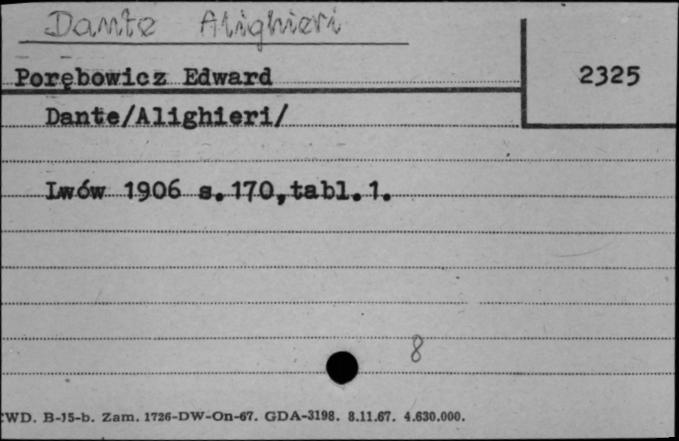 Dante Alighieri
Porębowicz Edward
2325
Dante/Alighieri/
Lwów 1906 s.170,tabl.1.
8
WD. B-15-b. Zam. 1726-DW-On-67. GDA-3198. 8.11.67. 4.630.000.